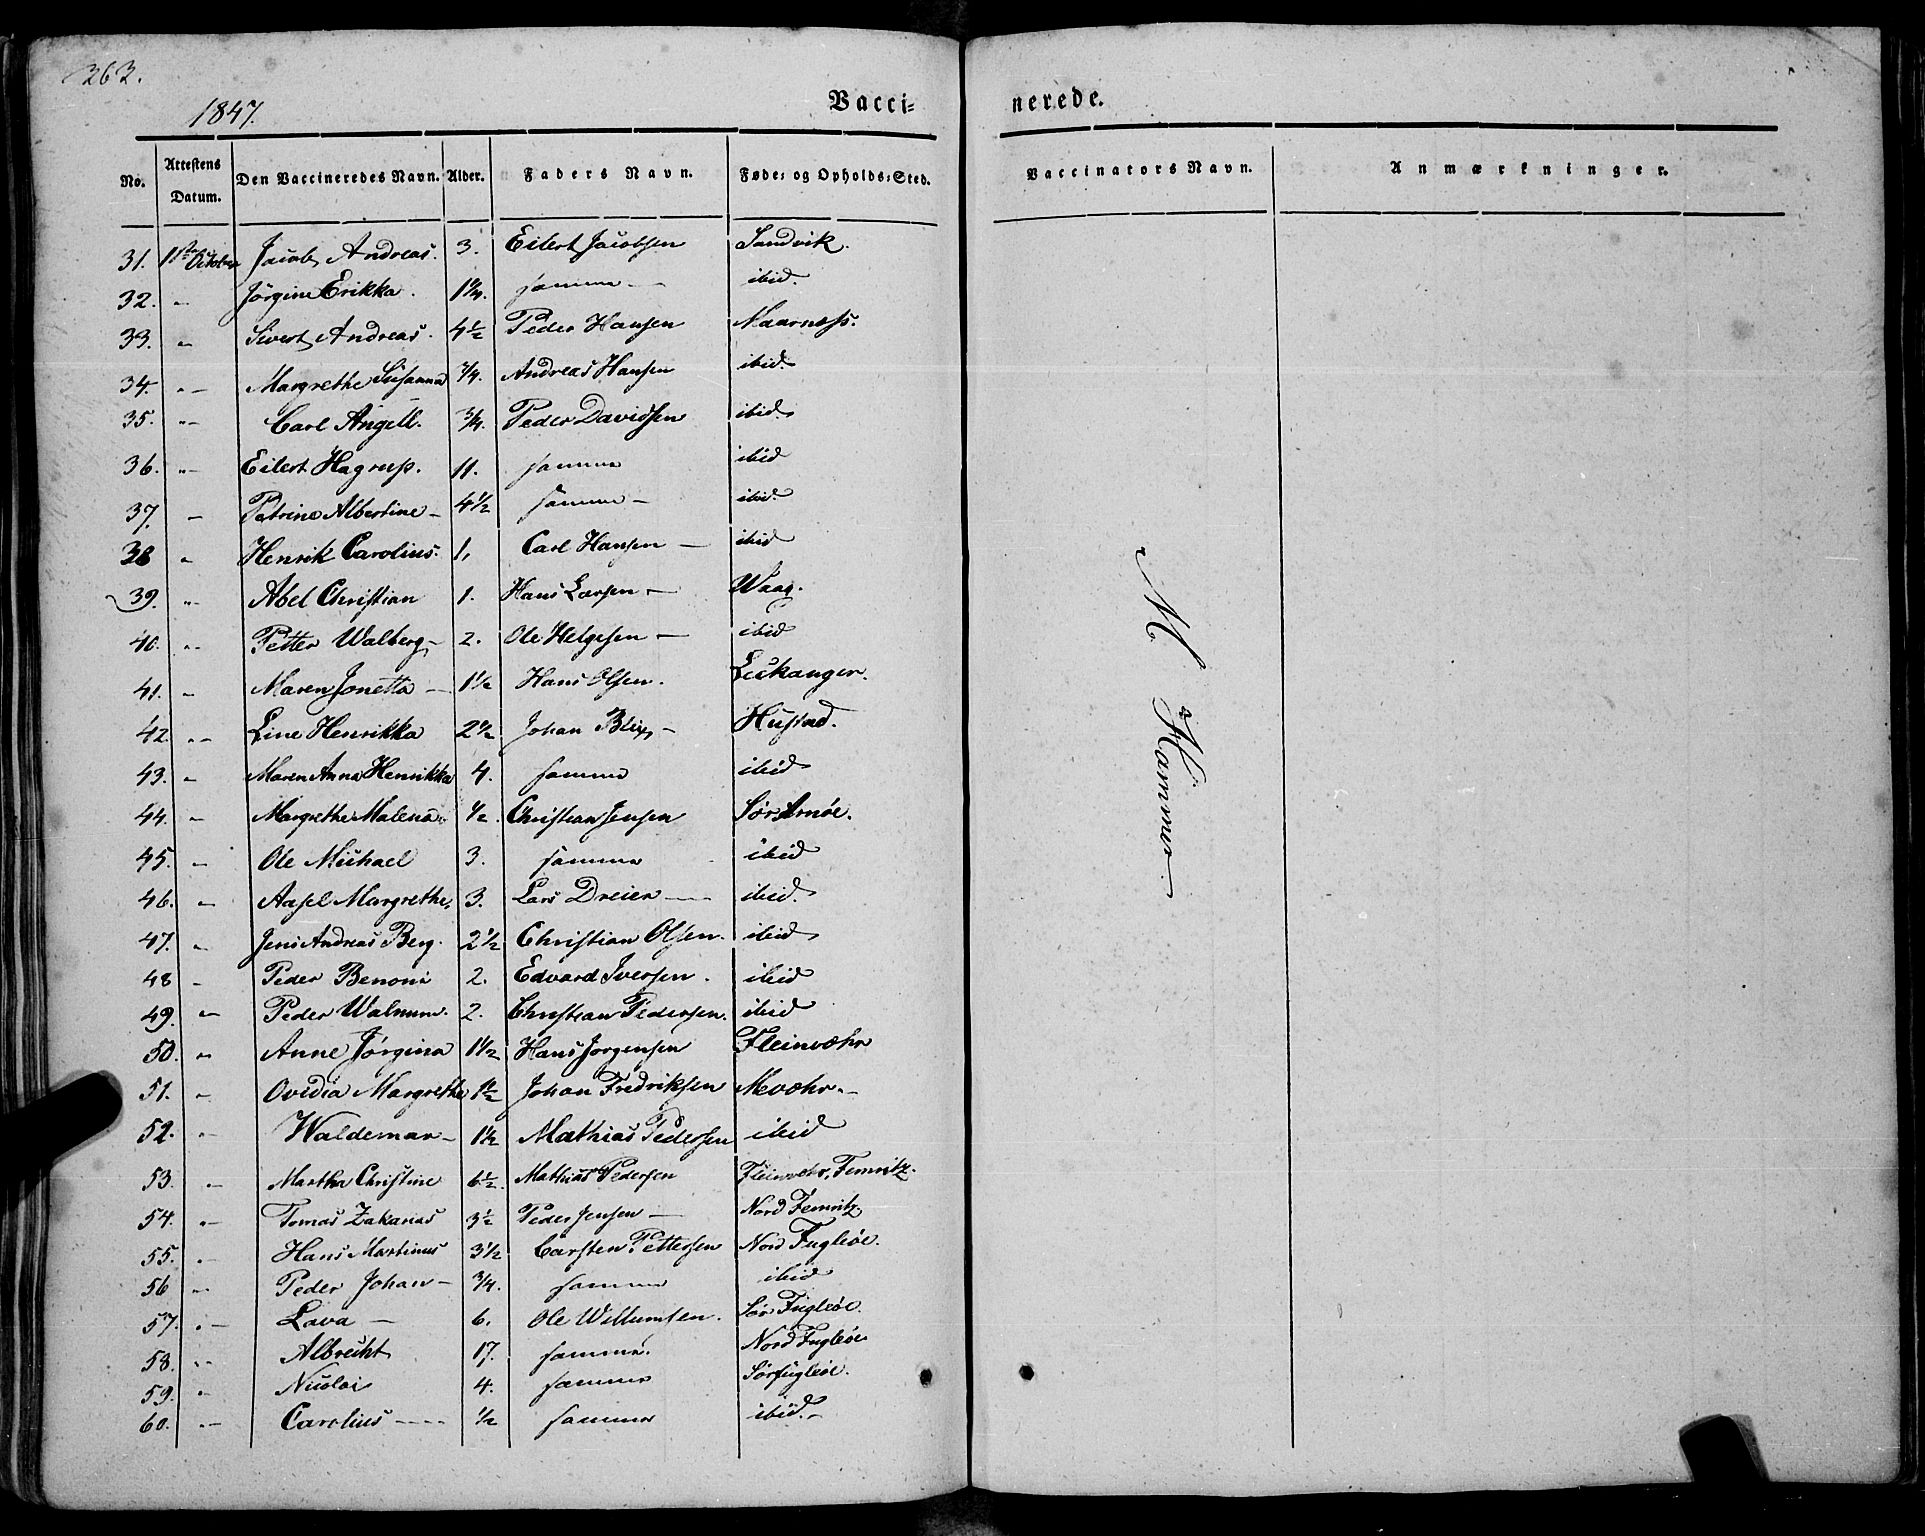 262.
1847.
Vacci- nerede.
No. Attestens Datum. Den Vaccineredes Navn. Alder. Faders Navn. Føde- og Opholds-Sted. Vaccinators Navn. Anmærkninger.
31. 1ste October Jacob Andreas. 3. Eilert Jacobsen Sandvik.
32. " Jørgine Erikka. samme ibid.
33. " Sivert Andreas. 4½ Peder Hansen Maarnæss.
34. " Margrethe Susanna ¾. Andreas Hansen ibid.
35. " Carl Angell. ¾. Peder Davidsen ibid.
36. " Eilert Hagrup. 11. samme ibid
37. " Petrine Albertine 4½ samme ibid.
38 " Henrik Carolius. 1, Carl Hansen ibid
39. " Abel Christian 1. Hans Larsen Waag.
40. " Petter Walberg 2. Ole Helgesen ibid
41. " Maren Jonetta 1½ Hans Olsen. Leekanger.
42 " Line Henrikka 2½ Johan Blix Hustad.
43. " Maren Anna Henrikka 4. samme ibid
44. " Margrethe Malena ½ Christian Jensen Sør Arnøe.
45. " Ole Michael 3. samme ibid
46. " Aasel Margrethe 3. Lars Dreier ibid.
47. " Jens Andreas Berg. 2½ Christian Olsen. ibid
48 " Peder Benoni 2. Edvard Iversen. ibid
49. " Peder Walnum. 2. Christian Pedersen. ibid
50. " Anne Jørgina 1½ Hans Jørgensen Fleinvæhr
51. " Ovidia Margrethe 1½ Johan Fredriksen Mevæhr
52. " Waldemar 1½ Mathias Pedersen ibid
53. " Martha Christine 6½. Mathias Pedersen Fleinvæhr, Femritz.
54. " Tomas Zakarias 3½ Peder Jensen Nord Femritz.
55. " Hans Martinus 3½ Carsten Pettersen Nord Fugleøe.
56 " Peder Johan ¾. samme ibid
57. " Lava 6. Ole Willumsen. Sør Fugleøe.
58. " Albrecht 17. samme. Nord Fugleøe
59. " Nicolai 4. samme Sørfugleøe.
60. " Carolius ½ samme ibid.
M Hammer